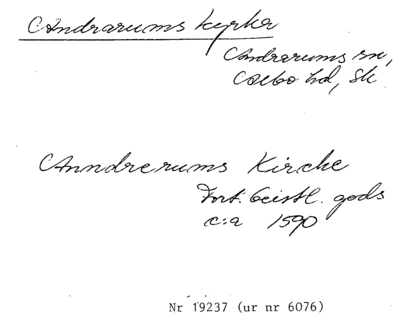 Andrarums kyrka
Andrarums sn,
Albo hd, Sk
Anndrerums Kirche
Fort. Geistl. gods
c:a 1590
Nr 19237 (ur nr 6076)